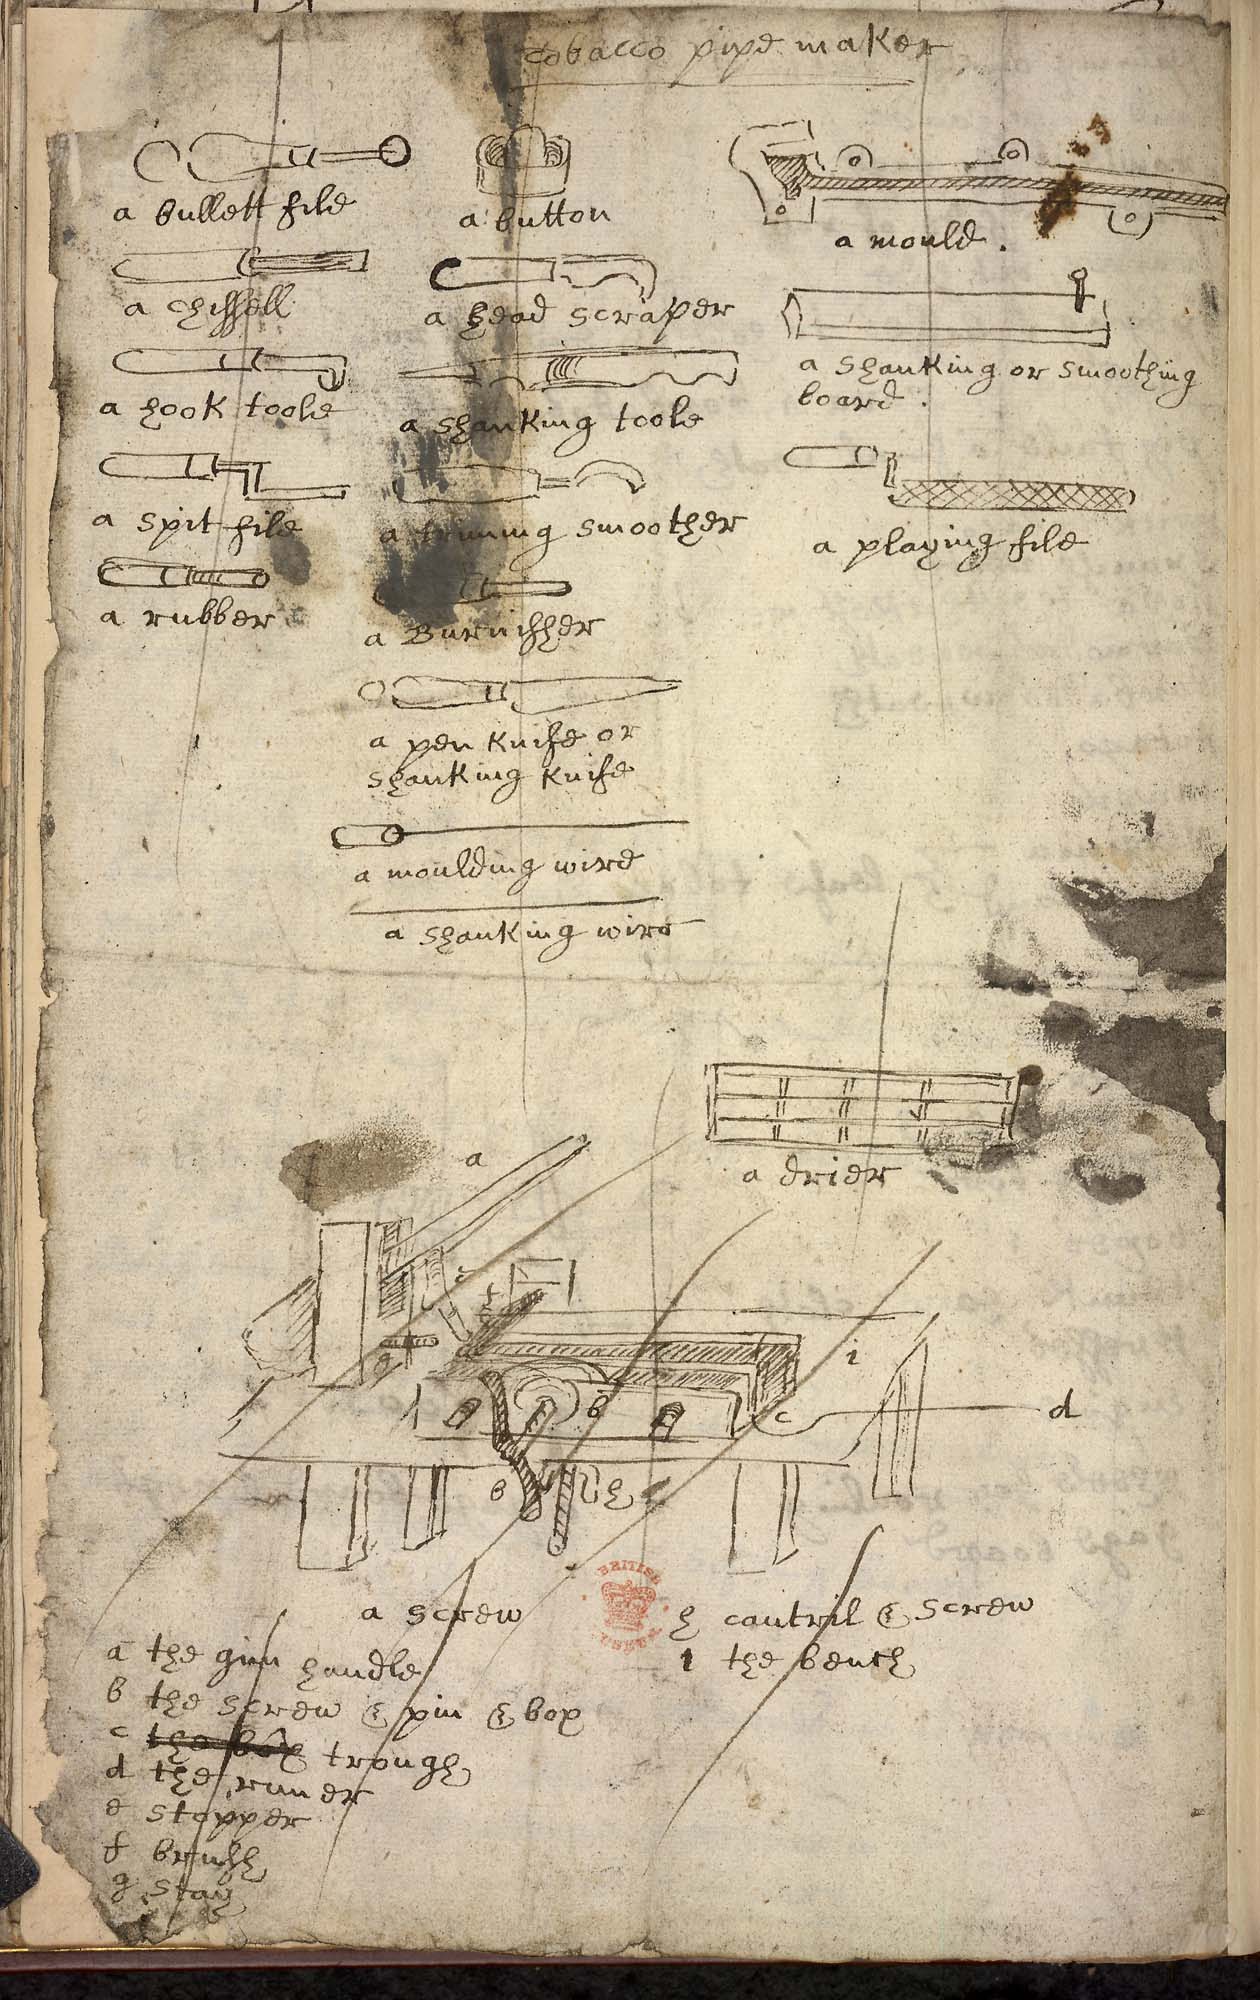 tobacco pipe maker
a bullett file
a button
a mould.
a chissell
a head scraper
a shanking or smoothing
board.
a hook toole
a shanking toole
a spit file
a triming smoother
a playing file
a rubber
a Burnissher
a pen knife or
shanking knife
a moulding wire
a shanking wire
a drier
a
e
f
g
i
b
c
d
b
h
a screw
a the gin handle
b the screw & pin & box
c the box trough
d the runer
e stopper
f brush
g stay
h cantril & screw
i the bench
BRITISH
MUSEUM